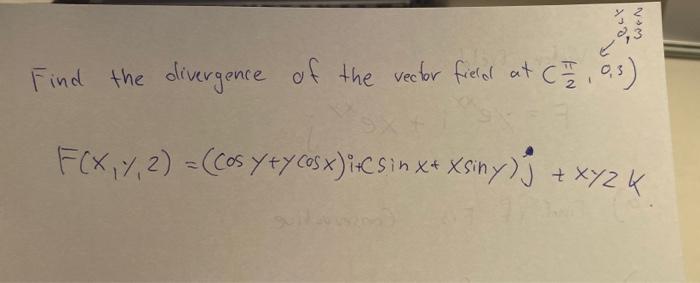 y z
0,3
Find the divergence of the vector field at (π/2, 0,3)
F(X,Y,Z) = (cos y+y cosx)i+(sin x+ xsiny)j + xyz k